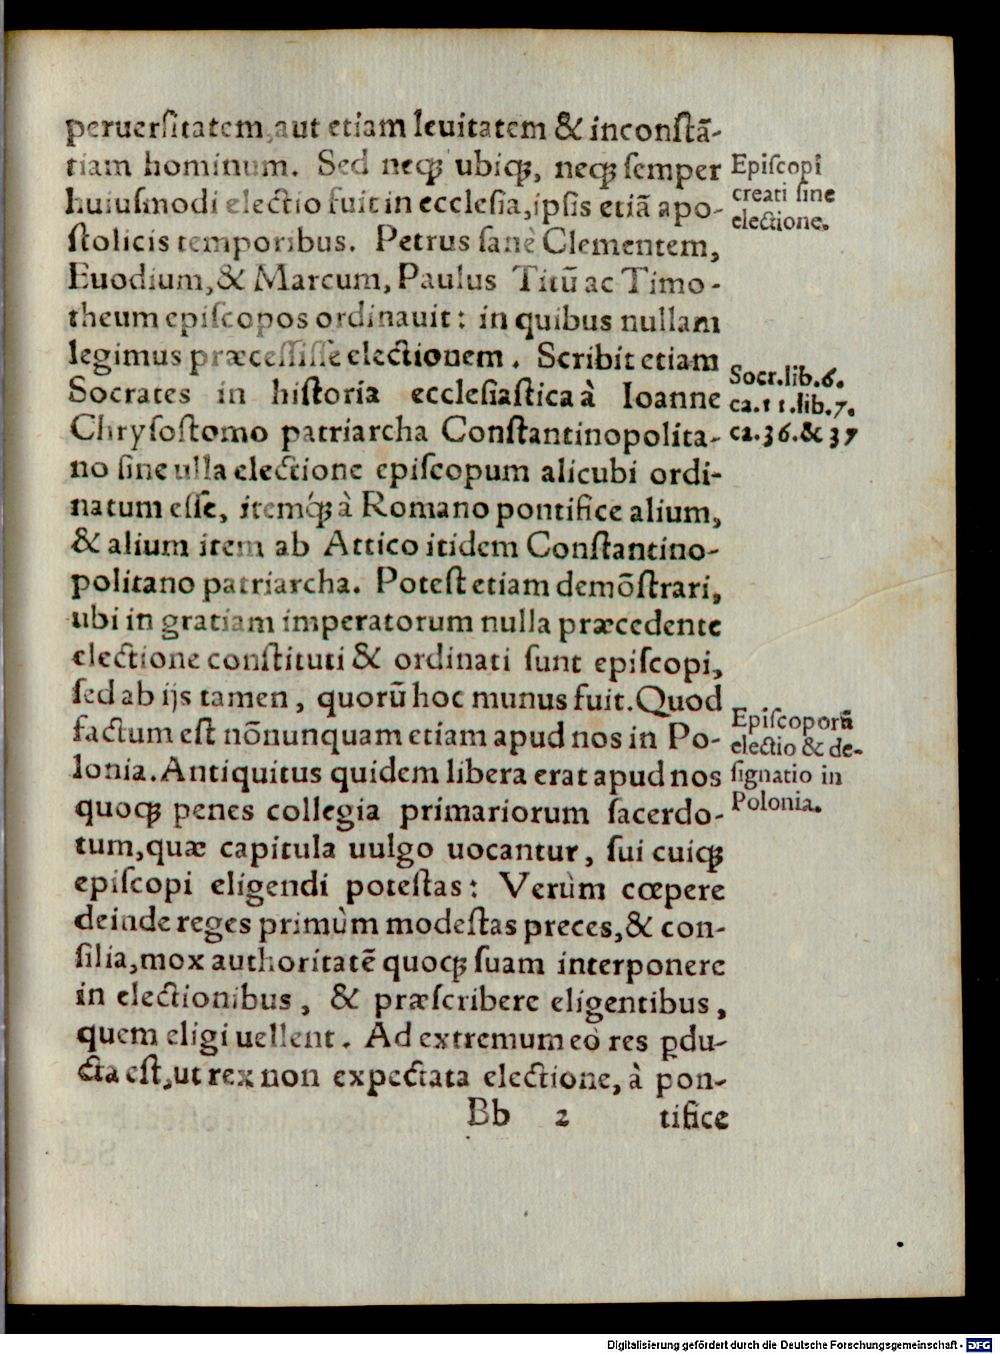 peruerſitatem, aut etiam leuitatem & inconſtã-
tiam hominum. Sed neqꝫ ubiqꝫ, neqꝫ ſemper
huiuſmodi electio fuit in eccleſia, ipſis etiã apo-
ſtolicis temporibus. Petrus ſanè Clementem,
Euodium, & Marcum, Paulus Titũ ac Timo-
theum epiſcopos ordinauit: in quibus nullam
legimus præceſſiſſe electionem. Scribit etiam
Socrates in hiſtoria eccleſiaſtica à Ioanne
Chryſoſtomo patriarcha Conſtantinopolita-
no ſine ulla electione epiſcopum alicubi ordi-
natum eſſe, itemq́ꝫ à Romano pontifice alium,
& alium item ab Attico itidem Conſtantino-
politano patriarcha. Poteſt etiam demõſtrari,
ubi in gratiam imperatorum nulla præcedente
electione conſtituti & ordinati ſunt epiſcopi,
ſed ab ijs tamen, quorũ hoc munus fuit. Quod
factum eſt nõnunquam etiam apud nos in Po-
lonia. Antiquitus quidem libera erat apud nos
quoqꝫ penes collegia primariorum ſacerdo-
tum, quæ capitula uulgo uocantur, ſui cuiqꝫ
epiſcopi eligendi poteſtas: Verùm cœpere
deinde reges primùm modeſtas preces, & con-
ſilia, mox authoritatẽ quoqꝫ ſuam interponere
in electionibus, & præſcribere eligentibus,
quem eligi uellent. Ad extremum eò res ꝓdu-
cta eſt, ut rex non expectata electione, à pon-
Bb 2 tifice
Epiſcopi
creati ſine
electione.
Socr. lib. 6.
ca. 11. lib. 7.
ca. 36. & 37
Epiſcoporũ
electio & de-
ſignatio in
Polonia.
Digitalisierung gefördert durch die Deutsche Forschungsgemeinschaft - DFG